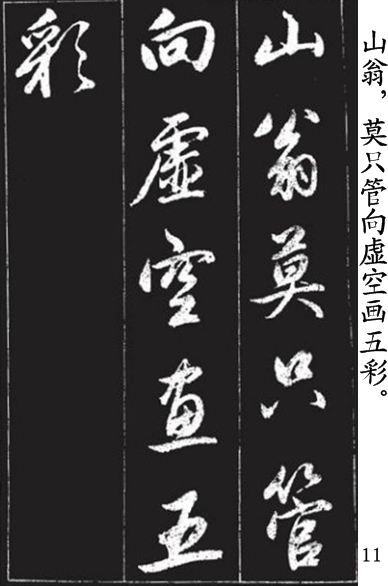 山翁，莫只管向虚空画五彩。
山翁莫只管
向虛空畫五
彩
11